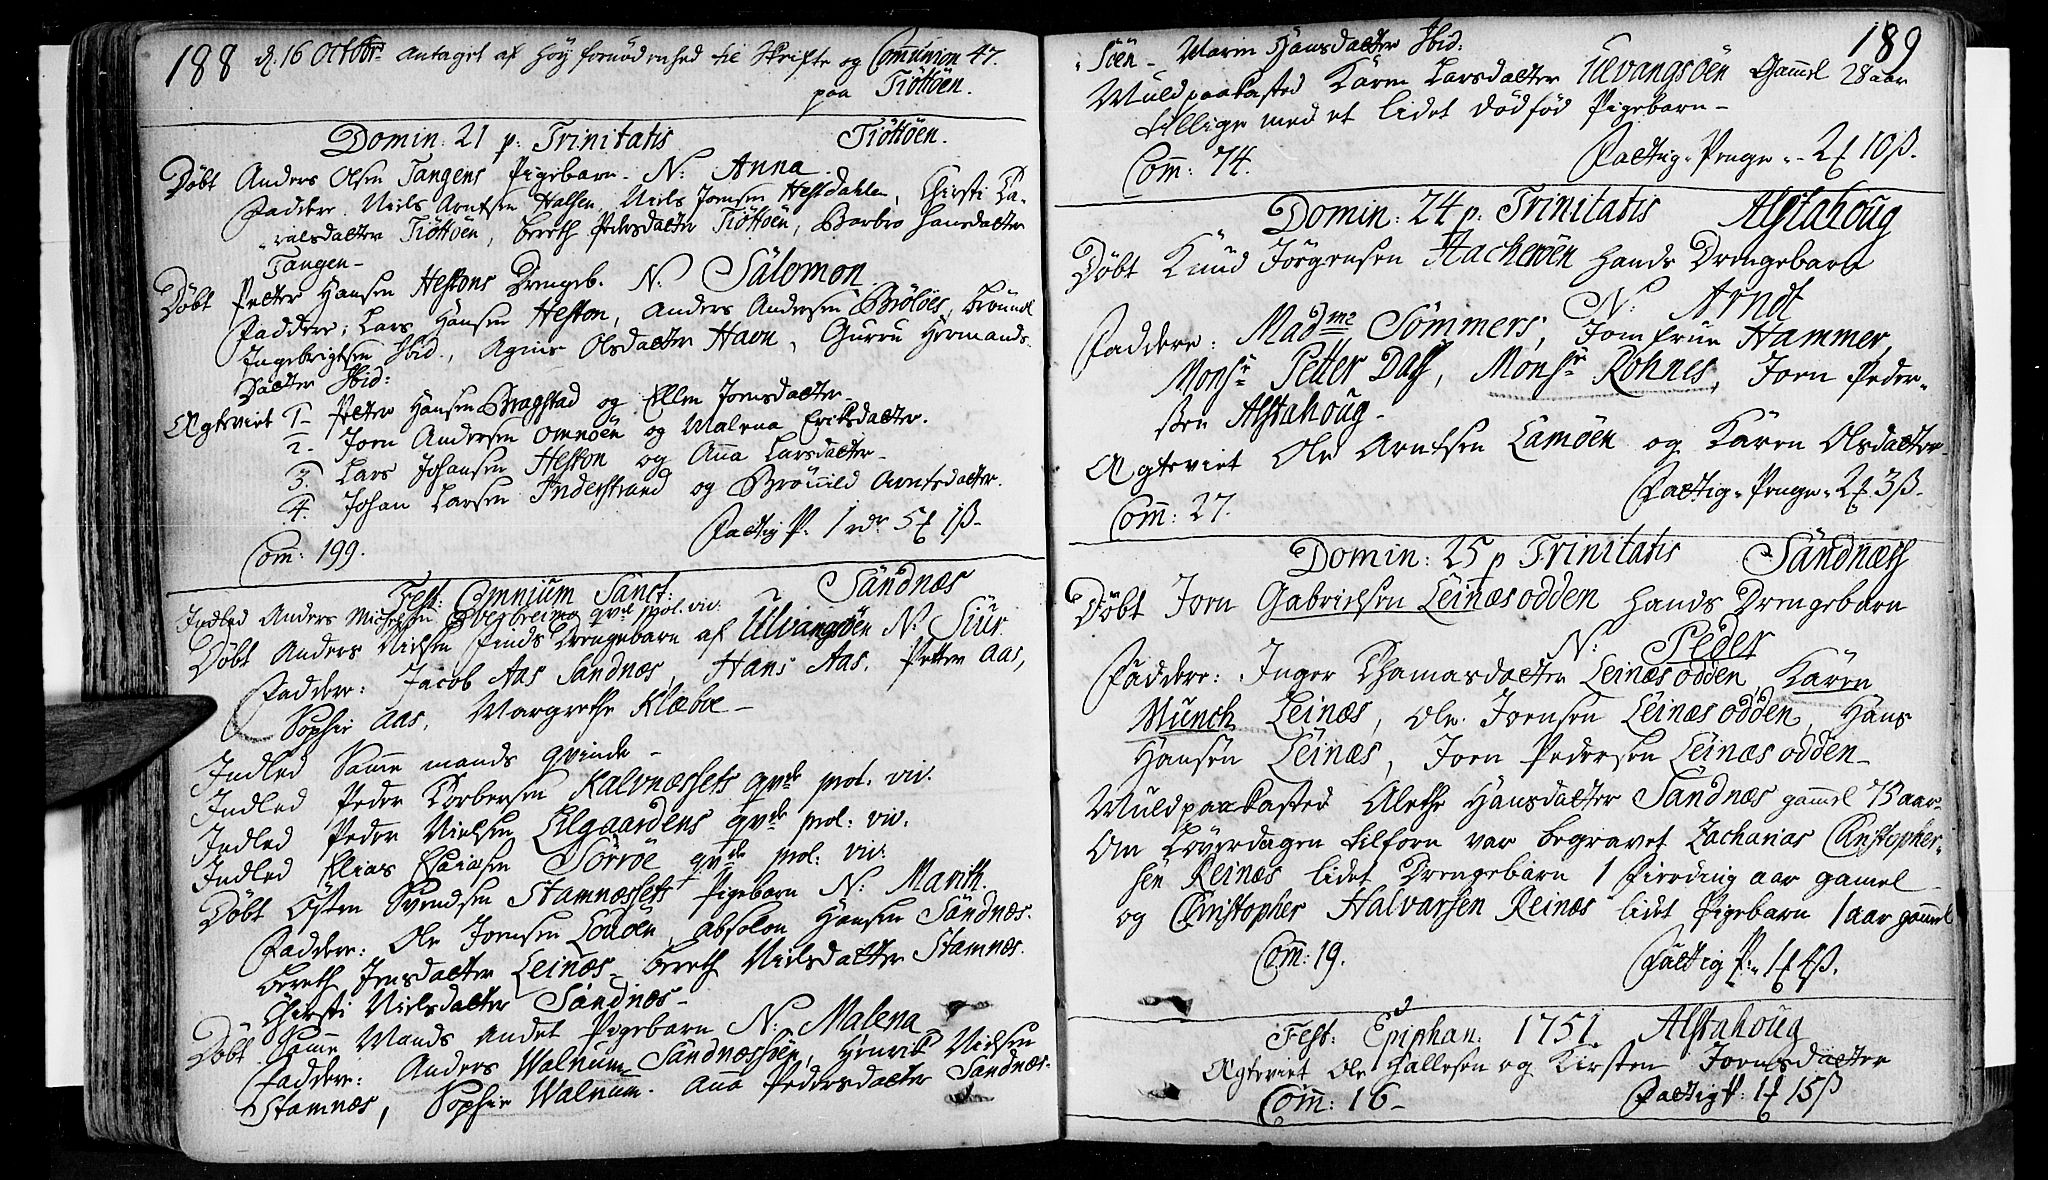 188 d. 16 Octobr antaget af høy fornødenhed til Skrifte og Communion 47.
paa Tiöttöen.
Domin: 21 p: Trinitatis Tiöttöen.
Døbt Anders Olsen Tangens Pigebarn. N: Anna
Faddere. Niels Arntsen Halsen, Niels Jonsen Hestdahlen, Chirsti La-
-ralsdatter Tiöttöen, Bereth Pedersdatter Tiöttöen, Barbro Hansdatter
Tangen-
Døbt Petter Hansen Hestöns Drengeb. N: Salomon
Faddere; Lars Hansen Hestön, Anders Andersen Bröløes,
Ingebrigtsen Ibid., Olsdatter Havn, Gurru Hermands
Datter Ibid:
Ægteviet 1- Petter Hansen Bragstad og Ellen Jonsdatter-
2- Jorn Andersen Omnöen og Malena Eriksdatter.
3. Lars Johansen Hestön og Anna Larsdatter-
4. Johan Larsen Inderstrand og Brönild Arntsdatter.
Fattig P: 1 rdr 5 ƒ 1ß-
Com: 199.
Fest: Omnium Sanct: Sandnæs
Indled Anders Michelsen qvde prol. viv:
Døbt Anders Nielsen Finds Drengebarn af Ulvangsöen N: Siur
Faddere: Jacob Aas Sandnæs, Hans Aas. Petter Aas,
Sophie Aas, Margrethe Klæboe-
Indled Samme mands qvinde-
Indled Peder Torbersen Kalvnæssets qvde prol. viv.
Indled Peder Nielsen Lilgaardens qvde prol: viv.
Indled Elias Esaiasen Sörröe qvde prol: viv:
Døbt Østen Svendsen Stamnæssets Pigebarn N: Marith.
Faddere: Ole Jonsen, Absolon Hansen Sandnæs.
Bereth Jensdatter Leinæs- Bereth Nielsdatter Stamnæs.
Chirsti Nielsdatter Sandnæs-
Døbt Samme Mands andet Pigebarn N: Malena
Faddere: Anders Walnum Sandnæssöen, Henrik Nielsen
Stamnæs, Sophie Walnum. Anna Pedersdatter Sandnæs.
189
-Söen- Maren Hansdatter Ibid:
Muldpaakasted Karen Larsdatter Ulvangsöen Gamel 28 aar
tillige med et lidet Dödföd Pigebarn-
Com: 74. Fattig-Penge-- 2ƒ 10ß.
Domin: 24 p: Trinitatis Alstahoug
Döbt Knud Jörgensen Hacheröen hands Drengebarn
N: Arndt
Faddere: Madme Sömmers, Jomfrue Hammer,
Monsr Petter Dass, Monsr Rohnes, Jorn Peder-
sen Alstahoug-
Ægteviet Ole Arntsen Lamöen og Karen Olsdatter-
Fattig-Penge- 2ƒ 3ß.
Com: 27.
Domin: 25 p Trinitatis Sandnæs
Döbt Jorn Gabrielsen Leinæsodden hands Drengebarn
N: Peder
Faddere: Inger Thamasdatter Leinæsodden, Karen
Munch Leinæs, Ole Jonsen Leinæsodden, Hans
Hansen Leinæs, Jorn Pedersen Leinæsodden-
Muldpaakasted Alethe Hansdatter Sandnæs gamel 75 aar-
Om Löverdagen tilforn var begravet Zacharias Christopher-
sen Reinæs lidet Drengebarn 1 Fierding aar gamel
og Christopher Halvarsen Reinæs lidet Pigebarn 1 aar gamel
Com: 19. Fattig P:- 1ƒ 4ß.
Fest: Epiphan: 1751. Alstahoug
Ægteviet Ole Hallesen og Kirsten Jornsdatter
Com: 16- Fattig P: 1ƒ 15ß